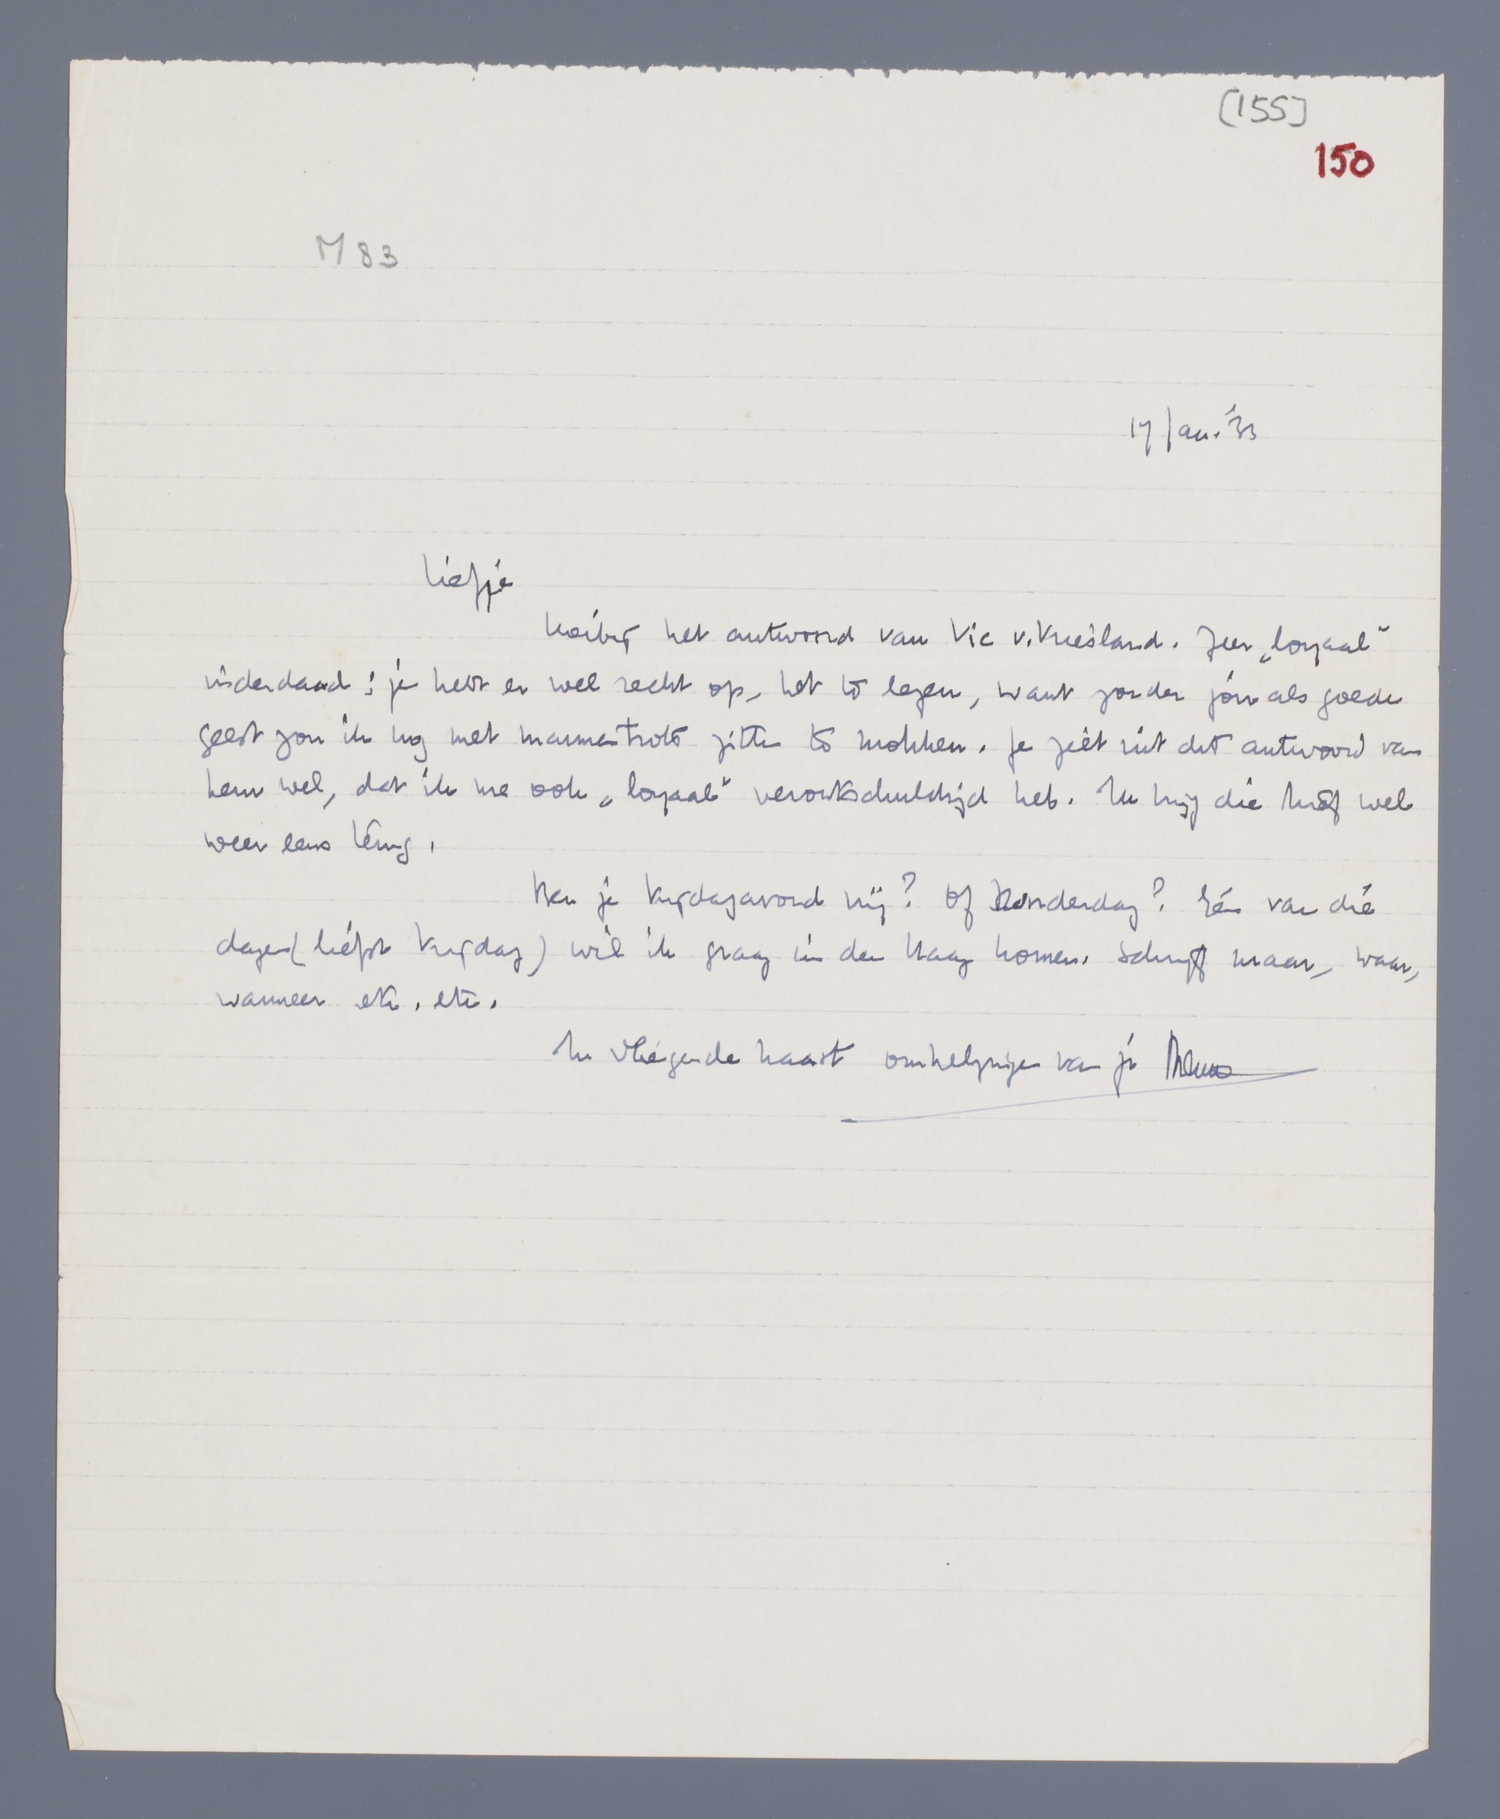 [155]
150
M 83
17 Jan. '33
Liefje
Hierbij het antwoord van Vic v. Vriesland. Zeer „loyaal"
inderdaad; je hebt er wel recht op, het te lezen, want zonder jou als goede
geest zou ik nog met mannentrots zitten te mokken. Je ziet uit dit antwoord van
hem wel, dat ik me ook „loyaal" verontschuldigd heb. Ik krijg die brief wel
weer eens terug.
Ben je Vrijdagavond vrij? Of Donderdag? Eén van die
dagen (liefst Vrijdag) wil ik graag in den Haag komen. Schrijf maar, waar,
wanneer etc. etc.
In vliegende haast omhelzingen van je Menno